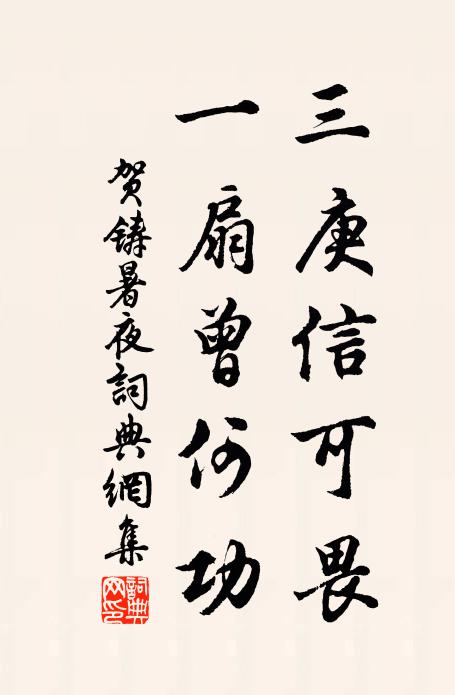 三庚信可畏
一扇曾何功
贺铸暑夜詞典網集
詞典网印